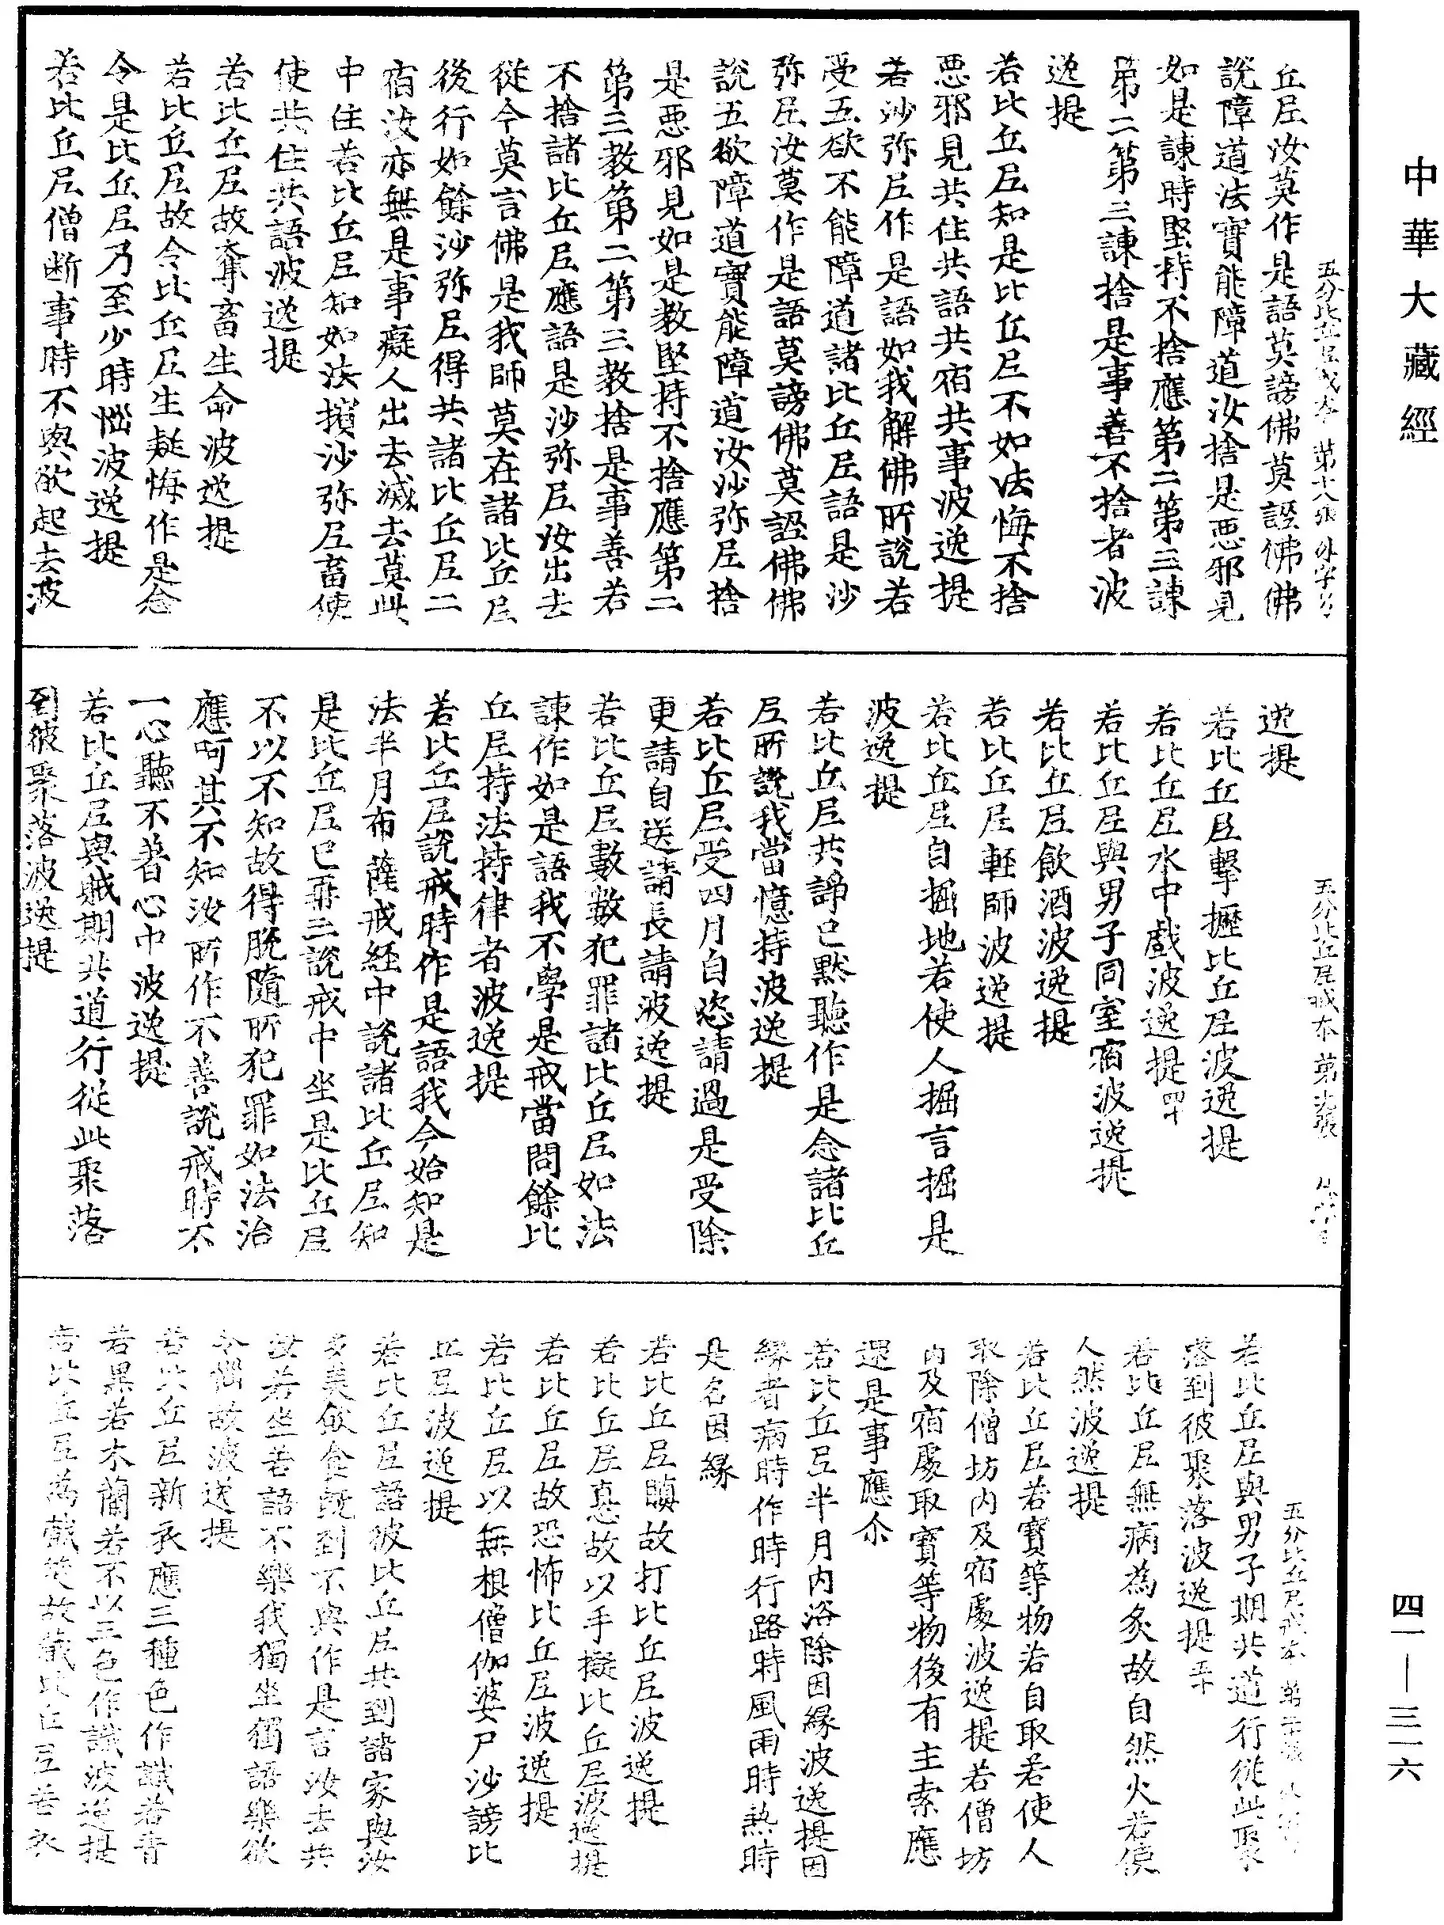 中華大藏經
五分比丘尼戒本 第十八張 外字号
丘尼汝莫作是語莫謗佛莫誣佛佛
說障道法實能障道汝捨是惡邪見
如是諫時堅持不捨應第二第三諫
第二第三諫捨是事善不捨者波
逸提
若比丘尼知是比丘尼不如法悔不捨
惡邪見共住共語共宿共事波逸提
若沙弥尼作是語如我解佛所說若
受五欲不能障道諸比丘尼語是沙
弥尼汝莫作是語莫謗佛莫誣佛佛
說五欲障道實能障道汝沙弥尼捨
是惡邪見如是教堅持不捨應第二
第三教第二第三教捨是事善若
不捨諸比丘尼應語是沙弥尼汝出去
從今莫言佛是我師莫在諸比丘尼
後行如餘沙弥尼得共諸比丘尼二
宿汝亦無是事癡人出去滅去莫此
中住若比丘尼知如法擯沙弥尼畜使
使共住共語波逸提
若比丘尼故奪畜生命波逸提
若比丘尼故令比丘尼生疑悔作是念
令是比丘尼乃至少時惱波逸提
若比丘尼僧断事時不與欲起去波
五分比丘尼戒本 第
逸提
若比丘尼擊攊比丘尼波逸提
若比丘尼水中戲波逸提 四十
若比丘尼與男子同室宿波逸提
若比丘尼飲酒波逸提
若比丘尼輕師波逸提
若比丘尼自掘地若使人掘言掘是
波逸提
若比丘尼共諍已默聽作是念諸比丘
尼所說我當憶持波逸提
若比丘尼受四月自恣請過是受除
更請自送請長請波逸提
若比丘尼數數犯罪諸比丘尼如法
諫作如是語我不學是戒當問餘比
丘尼持法持律者波逸提
若比丘尼說戒時作是語我今始知是
法半月布薩戒経中說諸比丘尼知
是比丘尼已再三說戒中坐是比丘尼
不以不知故得脫隨所犯罪如法治
應呵其不知汝所作不善說戒時不
一心聽不著心中波逸提
若比丘尼與賊期共道行從此聚落
到彼聚落波逸提
五分比丘尼戒本 第二十張
若比丘尼與男子期共道行從此聚
落到彼聚落波逸提 五十
若比丘尼無病為炙故自然火若使
人然波逸提
若比丘尼若寶等物若自取若使人
取除僧坊内及宿處波逸提若僧坊
内及宿處取寶等物後有主索應
還是事應尒
若比丘尼半月内浴除因緣波逸提因
緣者病時作時行路時風雨時熱時
是名因緣
若比丘尼瞋故打比丘尼波逸提
若比丘尼恚故以手擬比丘尼波逸提
若比丘尼故恐怖比丘尼波逸提
若比丘尼以無根僧伽婆尸沙謗比
丘尼波逸提
若比丘尼語彼比丘尼共到諸家與汝
多美飲食既到不與作是言汝去共
汝若坐若語不樂我獨坐獨語樂欲
令惱故波逸提
若比丘尼新衣應三種色作識若青
若黑若木蘭若不以三色作識波逸提
若比丘尼為戲笑故藏比丘尼若衣
四一—三一六